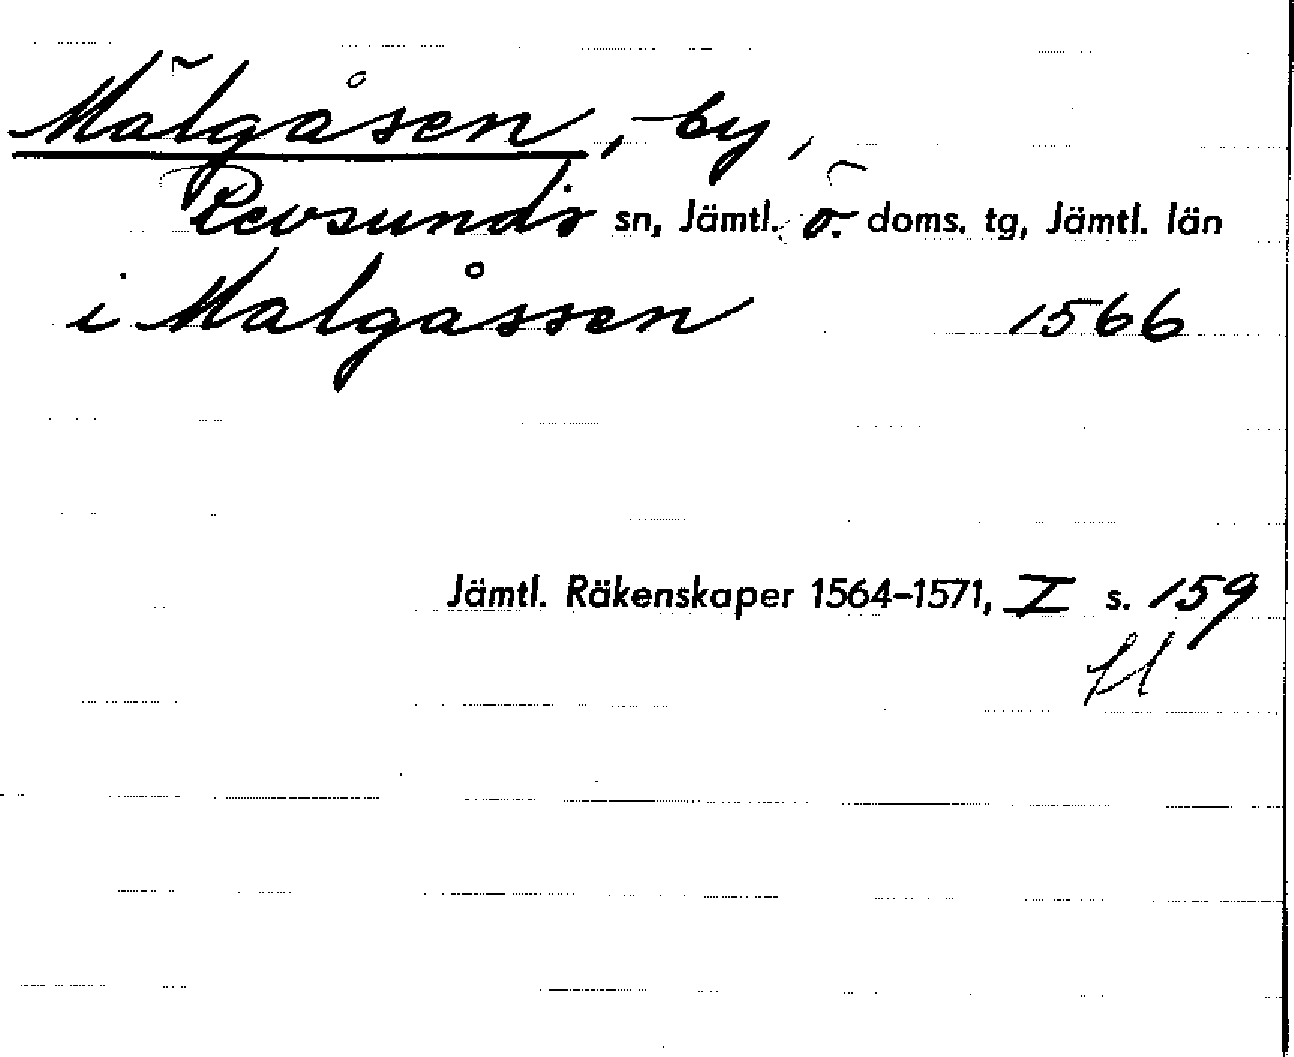 Mälgåsen, by,
Revsunds sn, Jämtl. ö. doms. tg, Jämtl. län
i Malgåssen 1566
Jämtl. Räkenskaper 1564–1571, I s. 159